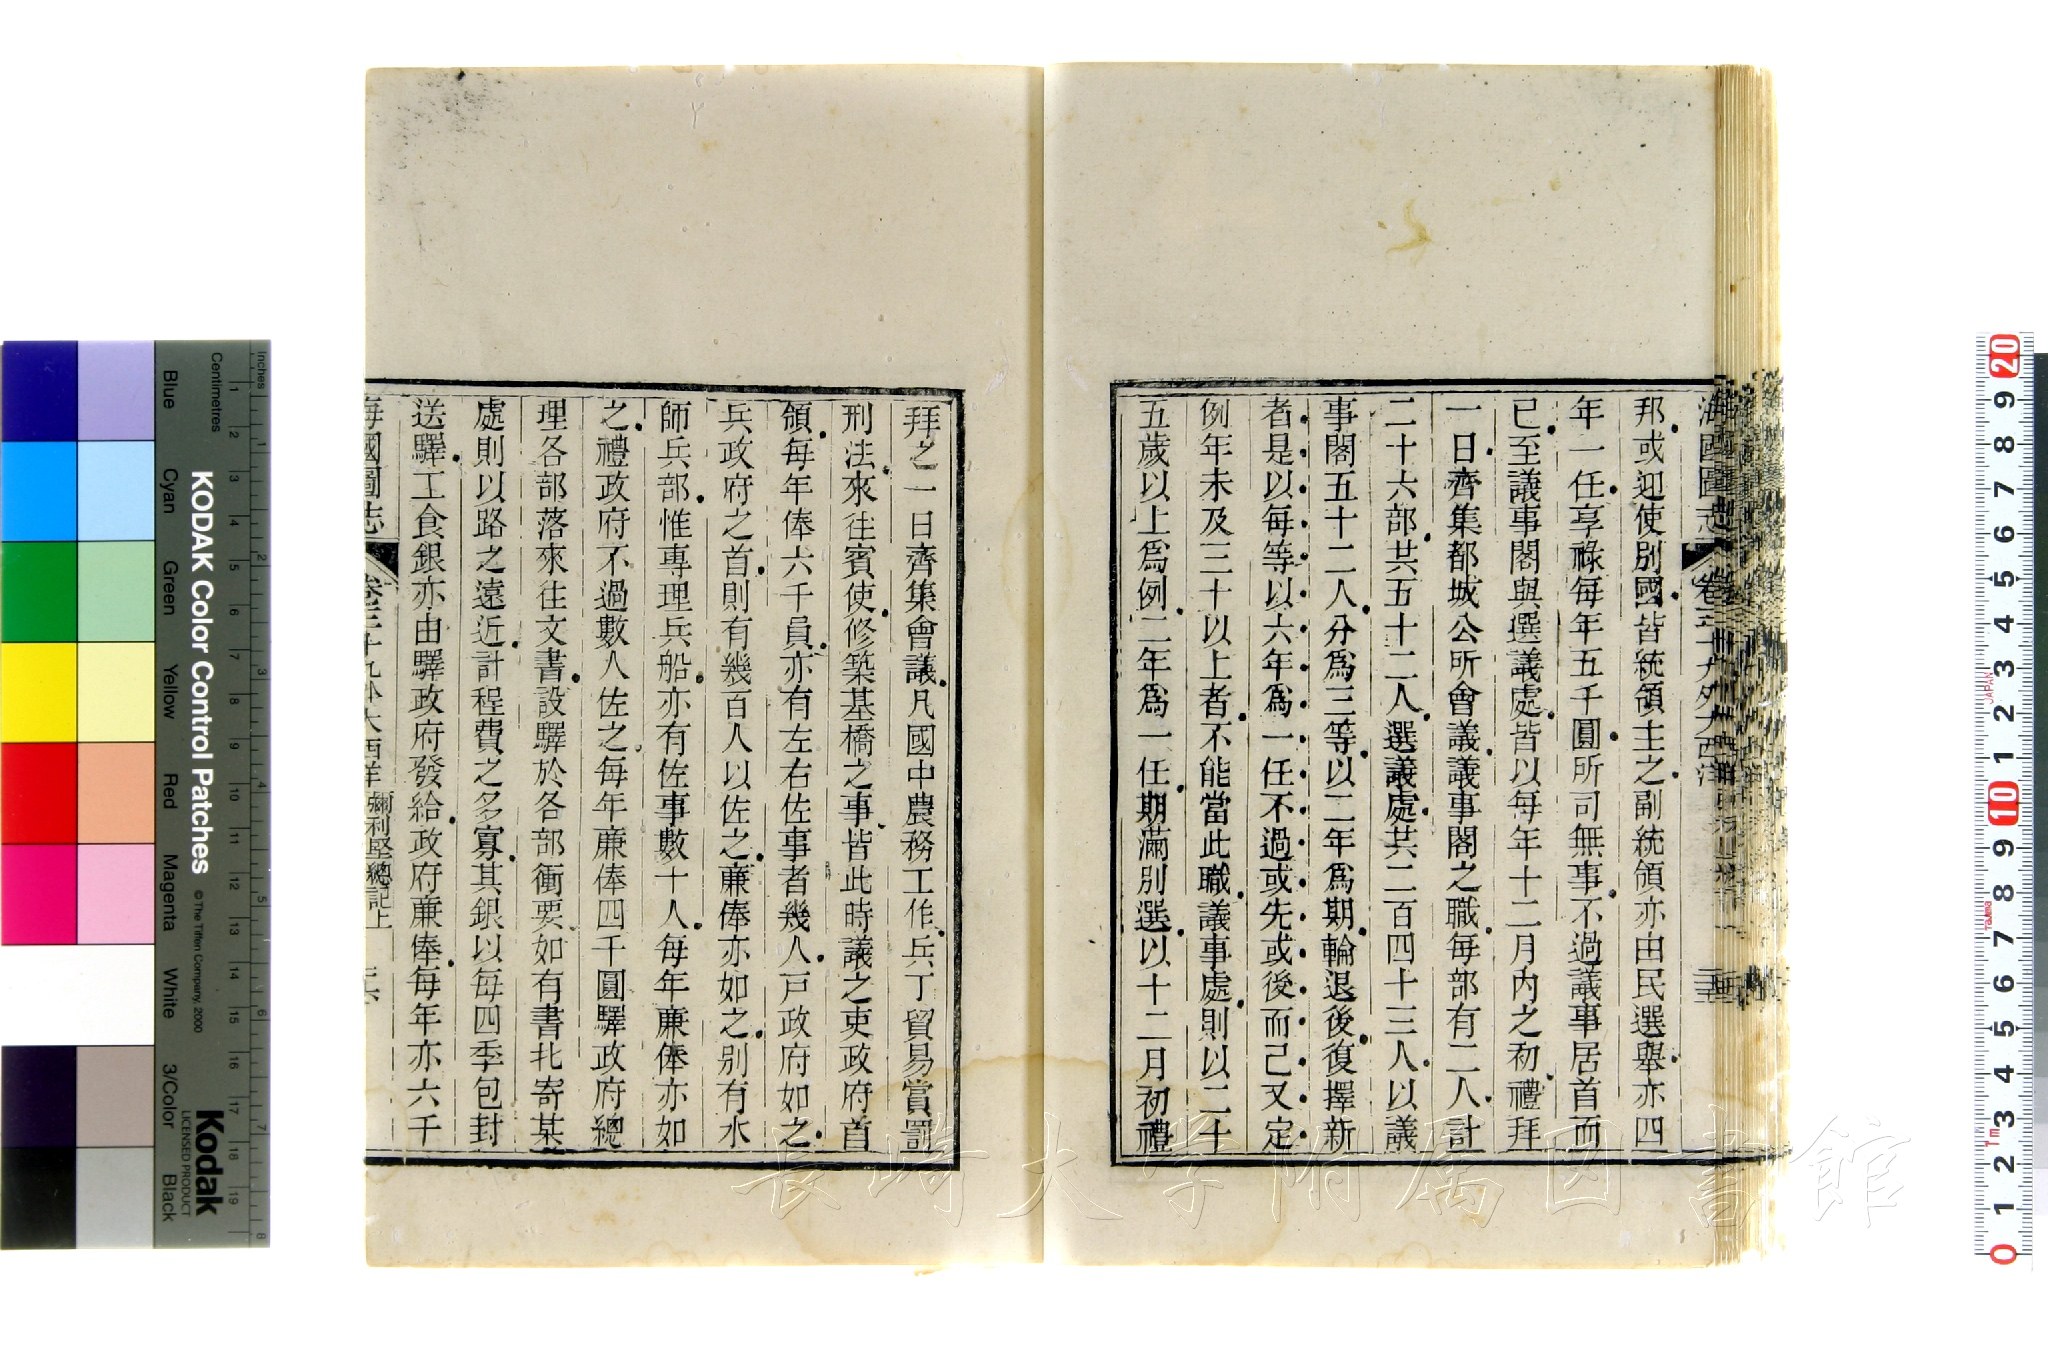 邦或迎使別國皆統領主之副統領亦由民選舉亦四
年一任享祿每年五千圓所司無事不過議事居首而
已至議事閣與選議處皆以每年十二月內之初禮拜
一日齊集都城公所會議議事閣之職每部有二人計
二十六部共五十二人選議處共二百四十三人以議
事閣五十二人分爲三等以二年爲期輪退後復擇新
者是以每等以六年爲一任不過或先或後而己又定
例年未及三十以上者不能當此職議事處則以二十
五歲以上爲例二年爲一任期滿別選以十二月初禮
拜之一日齊集會議凡國中農務工作兵丁貿易賞罰
刑法來往賓使修築基橋之事皆此時議之吏政府首
領每年俸六千員亦有左右佐事者幾人戸政府如之
兵政府之首則有幾百人以佐之亷俸亦如之別有水
師兵部惟專理兵船亦有佐事數十人每年亷俸亦如
之禮政府不過數人佐之每年亷俸四千圓驛政府總
理各部落來往文書設驛於各部衝要如有書札寄某
處則以路之遠近計程費之多寡其銀以每四季包封
送驛工食銀亦由驛政府發給政府亷俸每年亦六千
海國圖志 卷三十九外大西洋 彌利堅總記上
長崎大学附属図書館
Inches
Centimetres
KODAK Color Control Patches
© The Tiffen Company, 2000
Kodak
LICENSED PRODUCT
Blue
Cyan
Green
Yellow
Red
Magenta
White
3/Color
Black
1 2 3 4 5 6 7 8 9 10 11 12 13 14 15 16 17 18 19
JAPAN
20 9 8 7 6 5 4 3 2 1 10 9 8 7 6 5 4 3 2 1 0